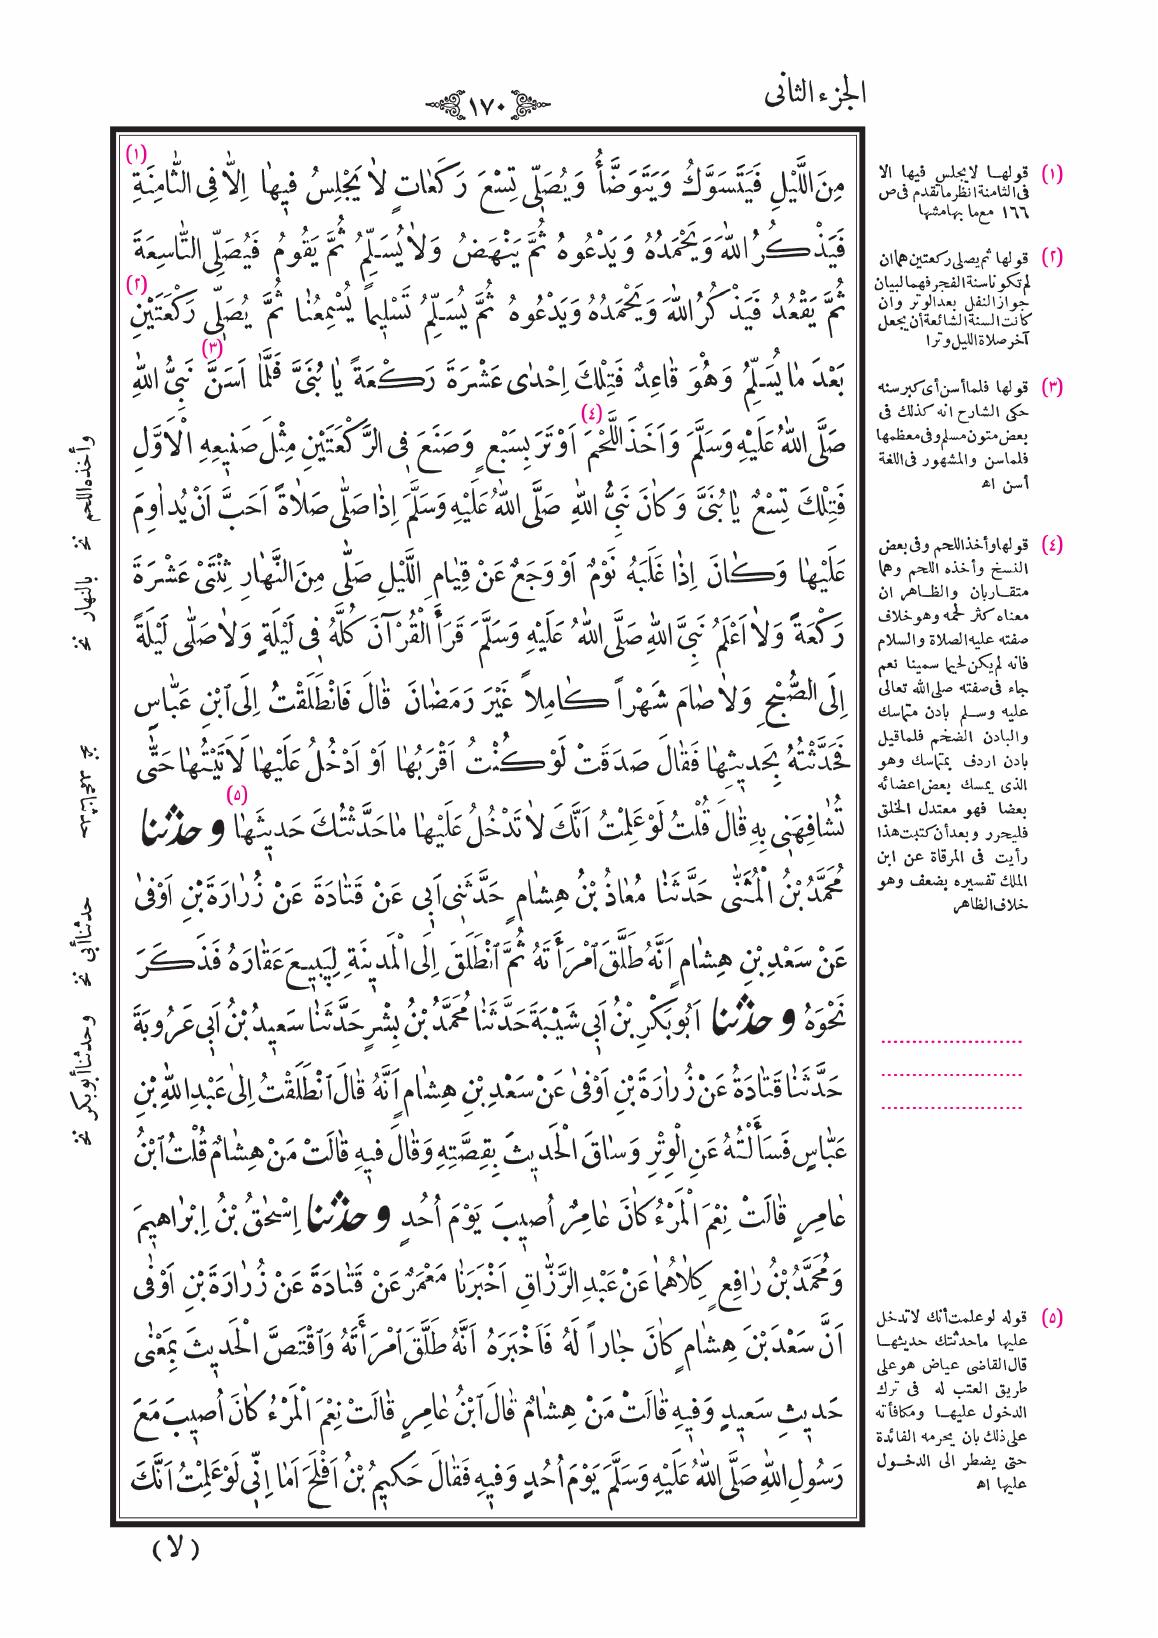 الجزء الثانى
١٧٠
مِنَ اللَّيْلِ فَيَتَسَوَّكُ وَيَتَوَضَّأُ وَيُصَلِّى تِسْعَ رَكَعَاتٍ لَا يَجْلِسُ فِيهَا اِلَّا فِى الثَّامِنَةِ (١)
فَيَذْكُرُ اللّٰهَ وَيَحْمَدُهُ وَيَدْعُوهُ ثُمَّ يَنْهَضُ وَلَا يُسَلِّمُ ثُمَّ يَقُومُ فَيُصَلِّى التَّاسِعَةَ
ثُمَّ يَقْعُدُ فَيَذْكُرُ اللّٰهَ وَيَحْمَدُهُ وَيَدْعُوهُ ثُمَّ يُسَلِّمُ تَسْلِيماً يُسْمِعُنَا ثُمَّ يُصَلِّى رَكْعَتَيْنِ (٢)
بَعْدَ مَا يُسَلِّمُ وَهُوَ قَاعِدٌ فَتِلْكَ اِحْدٰى عَشْرَةَ رَكْعَةً يَا بُنَىَّ فَلَمَّا (٣) اَسَنَّ نَبِىُّ اللّٰهِ
صَلَّى اللّٰهُ عَلَيْهِ وَسَلَّمَ وَاَخَذَ اللَّحْمَ (٤) اَوْتَرَ بِسَبْعٍ وَصَنَعَ فِى الرَّكْعَتَيْنِ مِثْلَ صَنِيعِهِ الْاَوَّلِ
فَتِلْكَ تِسْعٌ يَا بُنَىَّ وَكَانَ نَبِىُّ اللّٰهِ صَلَّى اللّٰهُ عَلَيْهِ وَسَلَّمَ اِذَا صَلَّى صَلَاةً اَحَبَّ اَنْ يُدَاوِمَ
عَلَيْهَا وَكَانَ اِذَا غَلَبَهُ نَوْمٌ اَوْ وَجَعٌ عَنْ قِيَامِ اللَّيْلِ صَلَّى مِنَ النَّهَارِ ثِنْتَىْ عَشْرَةَ
رَكْعَةً وَلَا اَعْلَمُ نَبِىَّ اللّٰهِ صَلَّى اللّٰهُ عَلَيْهِ وَسَلَّمَ قَرَأَ الْقُرْآنَ كُلَّهُ فِى لَيْلَةٍ وَلَا صَلَّى لَيْلَةً
اِلَى الصُّبْحِ وَلَا صَامَ شَهْراً كَامِلاً غَيْرَ رَمَضَانَ قَالَ فَانْطَلَقْتُ اِلَى ابْنِ عَبَّاسٍ
فَحَدَّثْتُهُ بِحَدِيثِهَا فَقَالَ صَدَقَتْ لَوْ كُنْتُ اَقْرَبُهَا اَوْ اَدْخُلُ عَلَيْهَا لَاَتَيْتُهَا حَتّٰى
تُشَافِهَنِى بِهِ قَالَ قُلْتُ لَوْ عَلِمْتُ اَنَّكَ لَا تَدْخُلُ عَلَيْهَا مَا حَدَّثْتُكَ حَدِيثَهَا (٥) و حدثنا
مُحَمَّدُ بْنُ الْمُثَنّٰى حَدَّثَنَا مُعَاذُ بْنُ هِشَامٍ حَدَّثَنِى اَبِى عَنْ قَتَادَةَ عَنْ زُرَارَةَ بْنِ اَوْفٰى
عَنْ سَعْدِ بْنِ هِشَامٍ اَنَّهُ طَلَّقَ امْرَأَتَهُ ثُمَّ انْطَلَقَ اِلَى الْمَدِينَةِ لِيَبِيعَ عَقَارَهُ فَذَكَرَ
نَحْوَهُ و حدثنا اَبُو بَكْرِ بْنُ اَبِى شَيْبَةَ حَدَّثَنَا مُحَمَّدُ بْنُ بِشْرٍ حَدَّثَنَا سَعِيدُ بْنُ اَبِى عَرُوبَةَ
حَدَّثَنَا قَتَادَةُ عَنْ زُرَارَةَ بْنِ اَوْفٰى عَنْ سَعْدِ بْنِ هِشَامٍ اَنَّهُ قَالَ انْطَلَقْتُ اِلٰى عَبْدِ اللّٰهِ بْنِ
عَبَّاسٍ فَسَأَلْتُهُ عَنِ الْوِتْرِ وَسَاقَ الْحَدِيثَ بِقِصَّتِهِ وَقَالَ فِيهِ قَالَتْ مَنْ هِشَامٌ قُلْتُ ابْنُ
عَامِرٍ قَالَتْ نِعْمَ الْمَرْءُ كَانَ عَامِرٌ اُصِيبَ يَوْمَ اُحُدٍ و حدثنا اِسْحٰقُ بْنُ اِبْرَاهِيمَ
وَمُحَمَّدُ بْنُ رَافِعٍ كِلَاهُمَا عَنْ عَبْدِ الرَّزَّاقِ اَخْبَرَنَا مَعْمَرٌ عَنْ قَتَادَةَ عَنْ زُرَارَةَ بْنِ اَوْفٰى
اَنَّ سَعْدَ بْنَ هِشَامٍ كَانَ جَاراً لَهُ فَاَخْبَرَهُ اَنَّهُ طَلَّقَ امْرَأَتَهُ وَاقْتَصَّ الْحَدِيثَ بِمَعْنٰى
حَدِيثِ سَعِيدٍ وَفِيهِ قَالَتْ مَنْ هِشَامٌ قَالَ ابْنُ عَامِرٍ قَالَتْ نِعْمَ الْمَرْءُ كَانَ اُصِيبَ مَعَ
رَسُولِ اللّٰهِ صَلَّى اللّٰهُ عَلَيْهِ وَسَلَّمَ يَوْمَ اُحُدٍ وَفِيهِ فَقَالَ حَكِيمُ بْنُ اَفْلَحَ اَمَا اِنِّى لَوْ عَلِمْتُ اَنَّكَ
(لا)
(١) قولها لا يجلس فيها الا
فى الثامنة انظر ما تقدم فى ص
١٦٦ مع ما بهامشها
(٢) قولها ثم يصلى ركعتين هما ان
لم تكونا سنة الفجر فهما لبيان
جواز النفل بعد الوتر وان
كانت السنة الشائعة أن يجعل
آخر صلاة الليل وترا
(٣) قولها فلما أسن أى كبر سنه
حكى الشارح انه كذلك فى
بعض متون مسلم وفى معظمها
فلما سن والمشهور فى اللغة
أسن اه
(٤) قولها وأخذ اللحم وفى بعض
النسخ وأخذه اللحم وهما
متقاربان والظاهر ان
معناه كثر لحمه وهو خلاف
صفته عليه الصلاة والسلام
فانه لم يكن لحيما سمينا نعم
جاء فى صفته صلى الله تعالى
عليه وسلم بادن متماسك
والبادن الضخم فلما قيل
بادن اردف بمتماسك وهو
الذى يمسك بعض اعضائه
بعضا فهو معتدل الخلق
فليحرر وبعد أن كتبت هذا
رأيت فى المرقاة عن ابن
الملك تفسيره بضعف وهو
خلاف الظاهر
(٥) قوله لو علمت أنك لا تدخل
عليها ما حدثتك حديثها
قال القاضى عياض هو على
طريق العتب له فى ترك
الدخول عليها ومكافأته
على ذلك بان يحرمه الفائدة
حتى يضطر الى الدخول
عليها اه
وأخذه اللحم نخ
بالنهار نخ
حدثنا أبى نخ
وحدثنا أبو بكر نخ